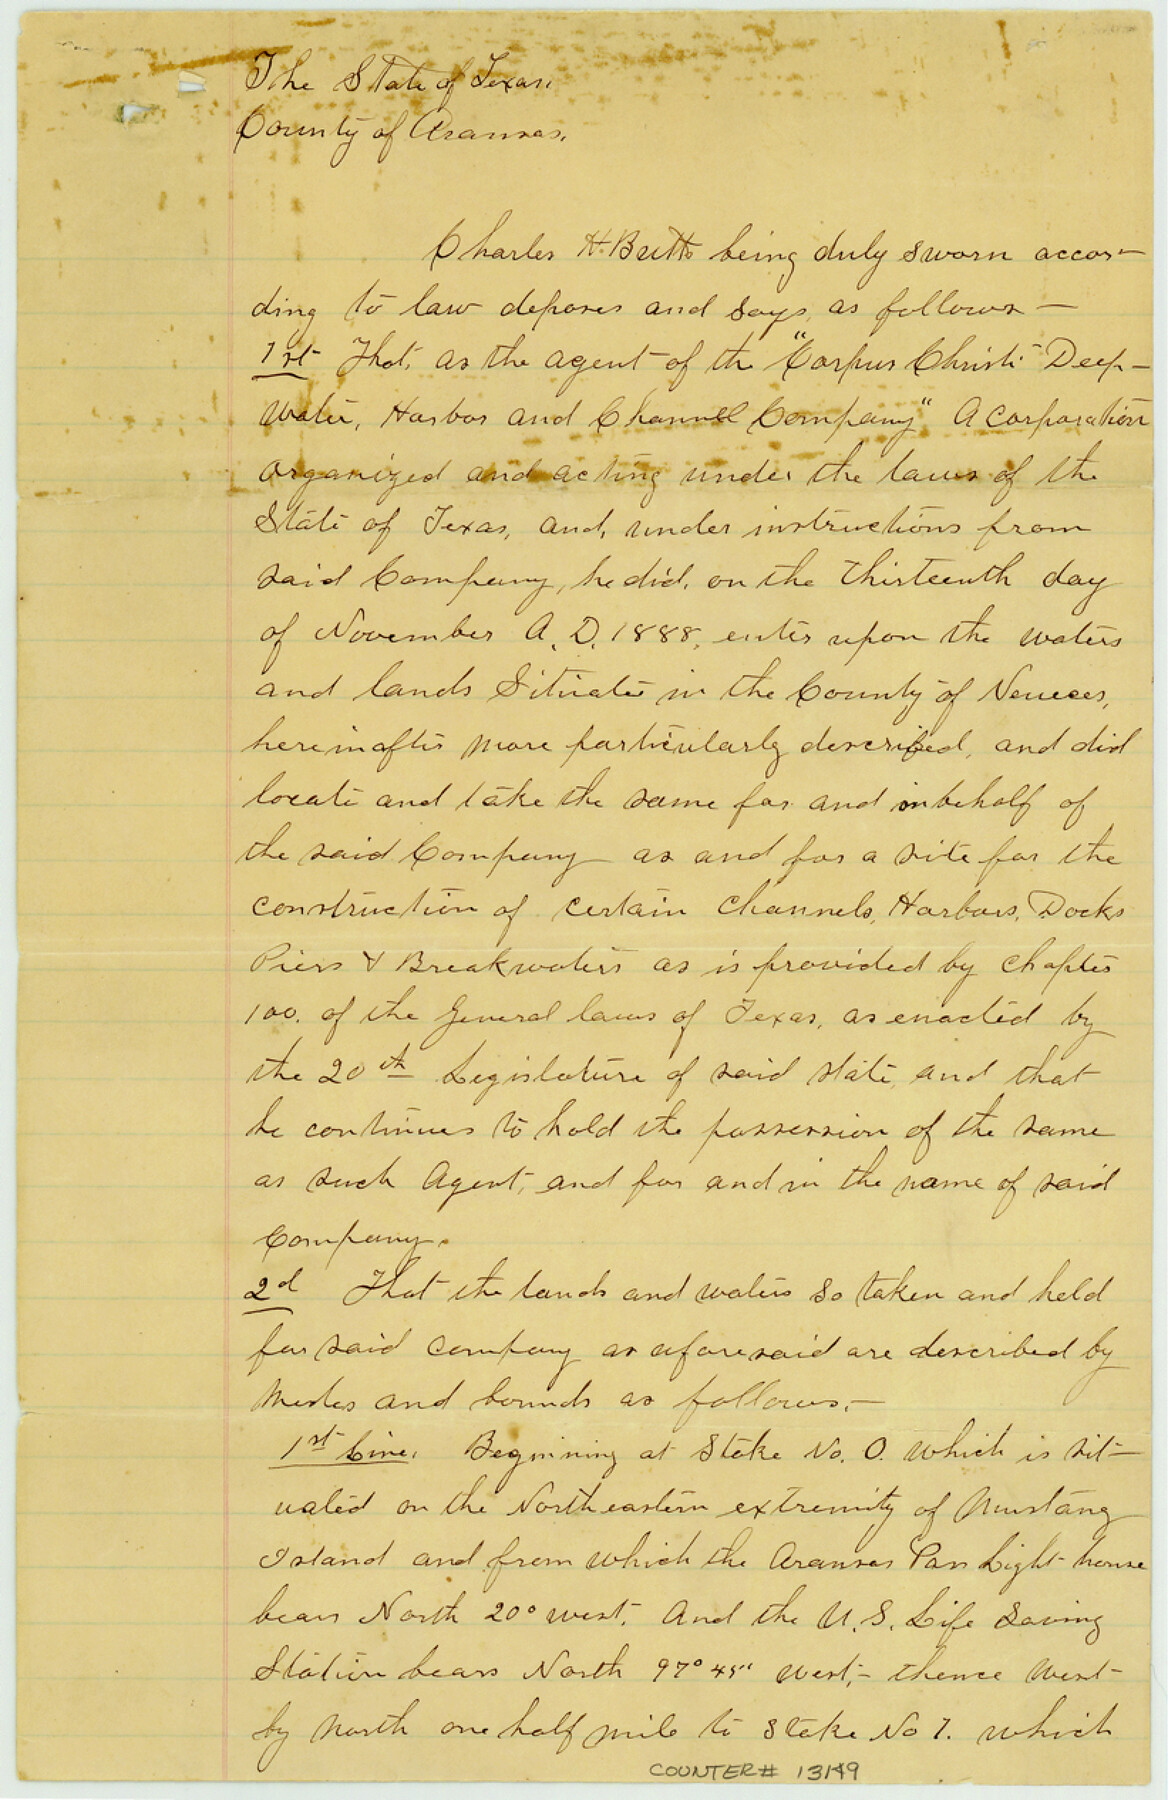 The State of Texas,
County of Aransas.
Charles H. Butts being duly sworn accor-
ding to law deposes and says, as follows —
1st That, as the agent of the "Corpus Christi Deep-
Water, Harbor and Channell Company" A Corporation
organized and acting under the laws of the
State of Texas, and, under instructions from
said Company, he did, on the thirteenth day
of November A.D. 1888, enter upon the waters
and lands Situate in the County of Neueces,
hereinafter more particularly described, and did
locate and take the same for and in behalf of
the said Company as and for a site for the
construction of certain channels, Harbors, Docks
Piers & Breakwaters as is provided by Chapter
100. of the General laws of Texas, as enacted by
the 20th Legislature of said state, and that
he continues to hold the possession of the same
as such Agent, and for and in the name of said
Company.
2d That the lands and waters so taken and held
for said company as aforesaid are described by
metes and bounds as follows, —
1st Line. Beginning at Stake No. 0. which is sit-
uated on the Northeastern extremity of Mustang
Island and from which the Aransas Pass Light-house
bears North 20° west. And the U.S. Life Saving
Station bears North 97° 45" West, - thence West
by north one half mile to Stake No 1. which
COUNTER# 13149